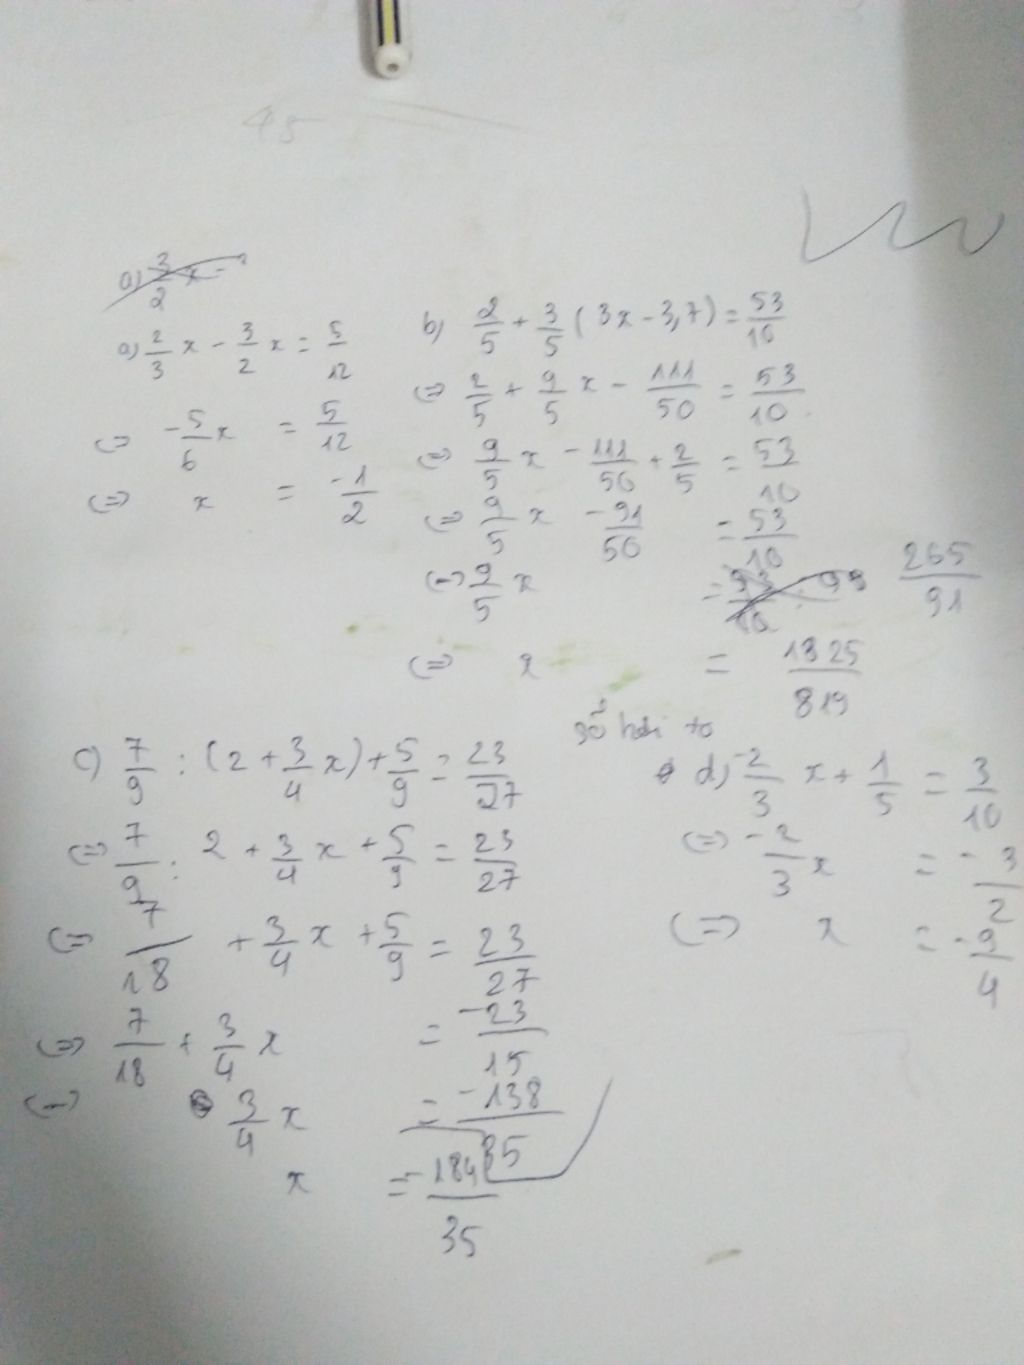 45
a) 3/2 x -
a) 2/3 x - 3/2 x = 5/12
(=) -5/6 x = 5/12
(=) x = -1/2
b) 2/5 + 3/5 ( 3x - 3,7 ) = 53/10
(=) 2/5 + 9/5 x - 111/50 = 53/10
(=) 9/5 x - 111/50 + 2/5 = 53/10
(=) 9/5 x - 91/50 = 53/10
(=) 9/5 x = 265/91
(=) x = 1325/819
số hơi to
c) 7/9 : (2 + 3/4 x) + 5/9 = 23/27
(=) 7/9 : 2 + 3/4 x + 5/9 = 23/27
(=) 7/18 + 3/4 x + 5/9 = 23/27
(=) 7/18 + 3/4 x = -23/15
(=) 3/4 x = -138/35
x = -184/35
d) -2/3 x + 1/5 = 3/10
(=) -2/3 x = -3/2
(=) x = -9/4